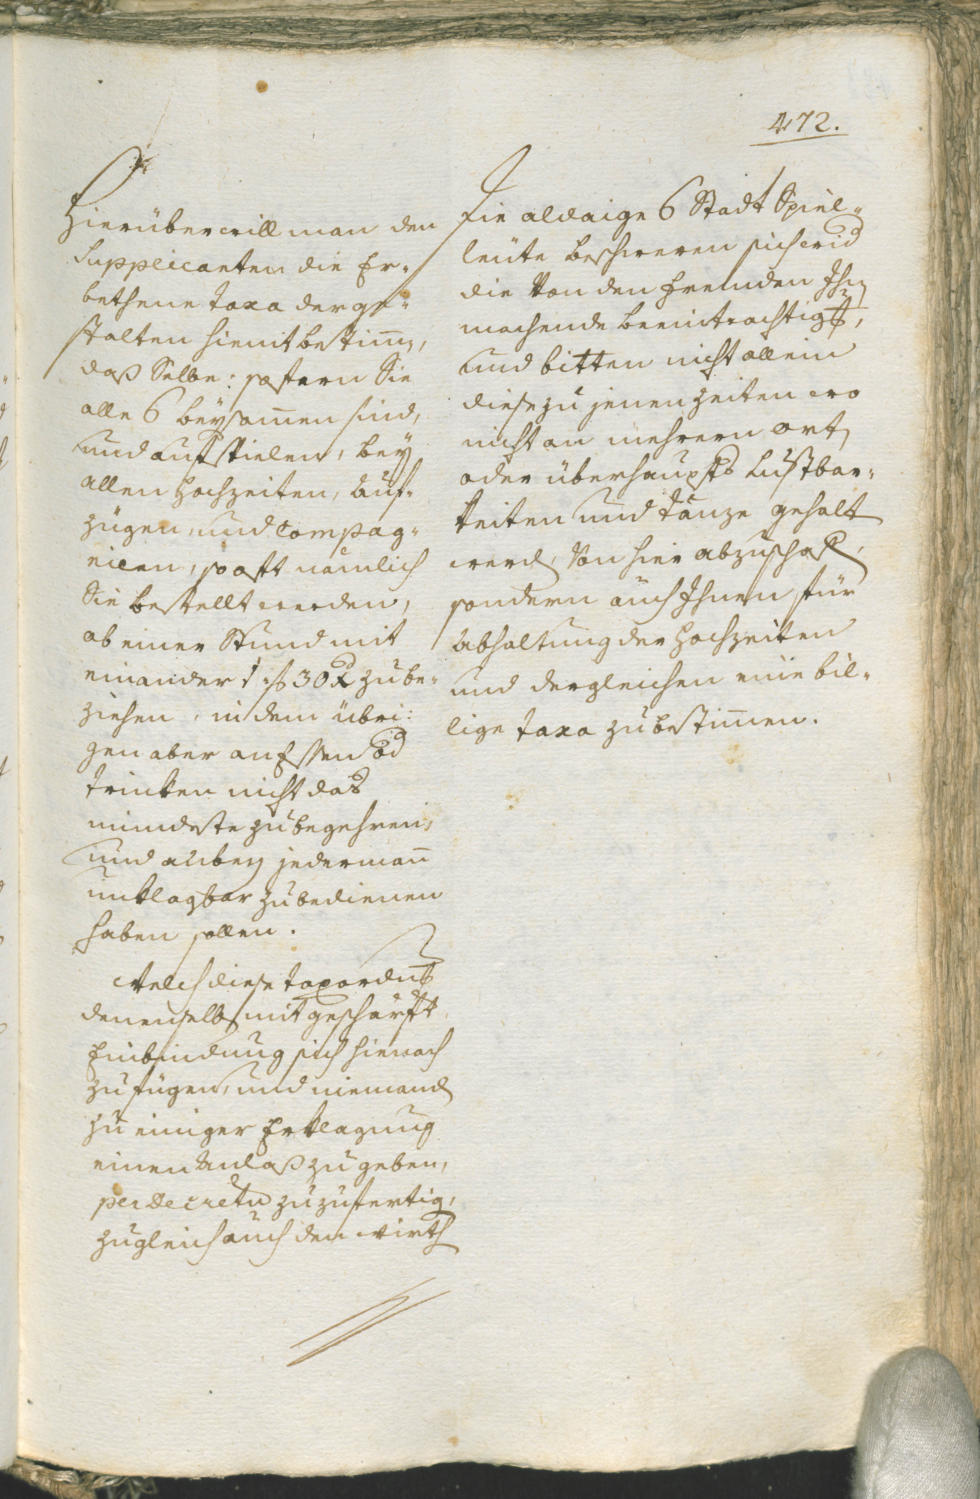 472.
Hierüber will man den
Supplicanten die Er-
bethene taxa derge-
stalten hiemit bestim̅,
daß Selbe: sofern Sie
alle 6 beysam̅en sind,
und aufspielen, bey
allen Hochzeiten, Auf-
zügen, und Compag-
nien, so oft nämlich
Sie bestellt werden,
ab einer Stund mit
einander 1 f 30 x zu be-
ziehen, in dem übri:
gen aber an Essen ud
trinken nicht das
mindeste zu begehren,
und anbey jederman̅
unklagbar zu bedienen
haben sollen.
Welch diese taxordnung
denenselb mit geschärft
Einbindung sich hienach
zu fügen, und niemand
zu einiger Erklagung
einen Anlaß zu geben,
per Decretu zuzufertig,
zugleich auch den Wirth
Die aldaige 6 Stadt Spiel-
leute beschweren sich wid
die Von den fremden Ihn
machende beeintrachtigg,
und bitten nicht allein
diese zu jenen Zeiten wo
nicht an mehrern ort,
oder überhaupts Lustbar-
keiten und tänze gehalt
werd, Von hier abzuschaff,
sondern auch Ihnen für
Abhaltung der Hochzeiten
und dergleichen eine bil-
lige taxa zu bestim̅en.